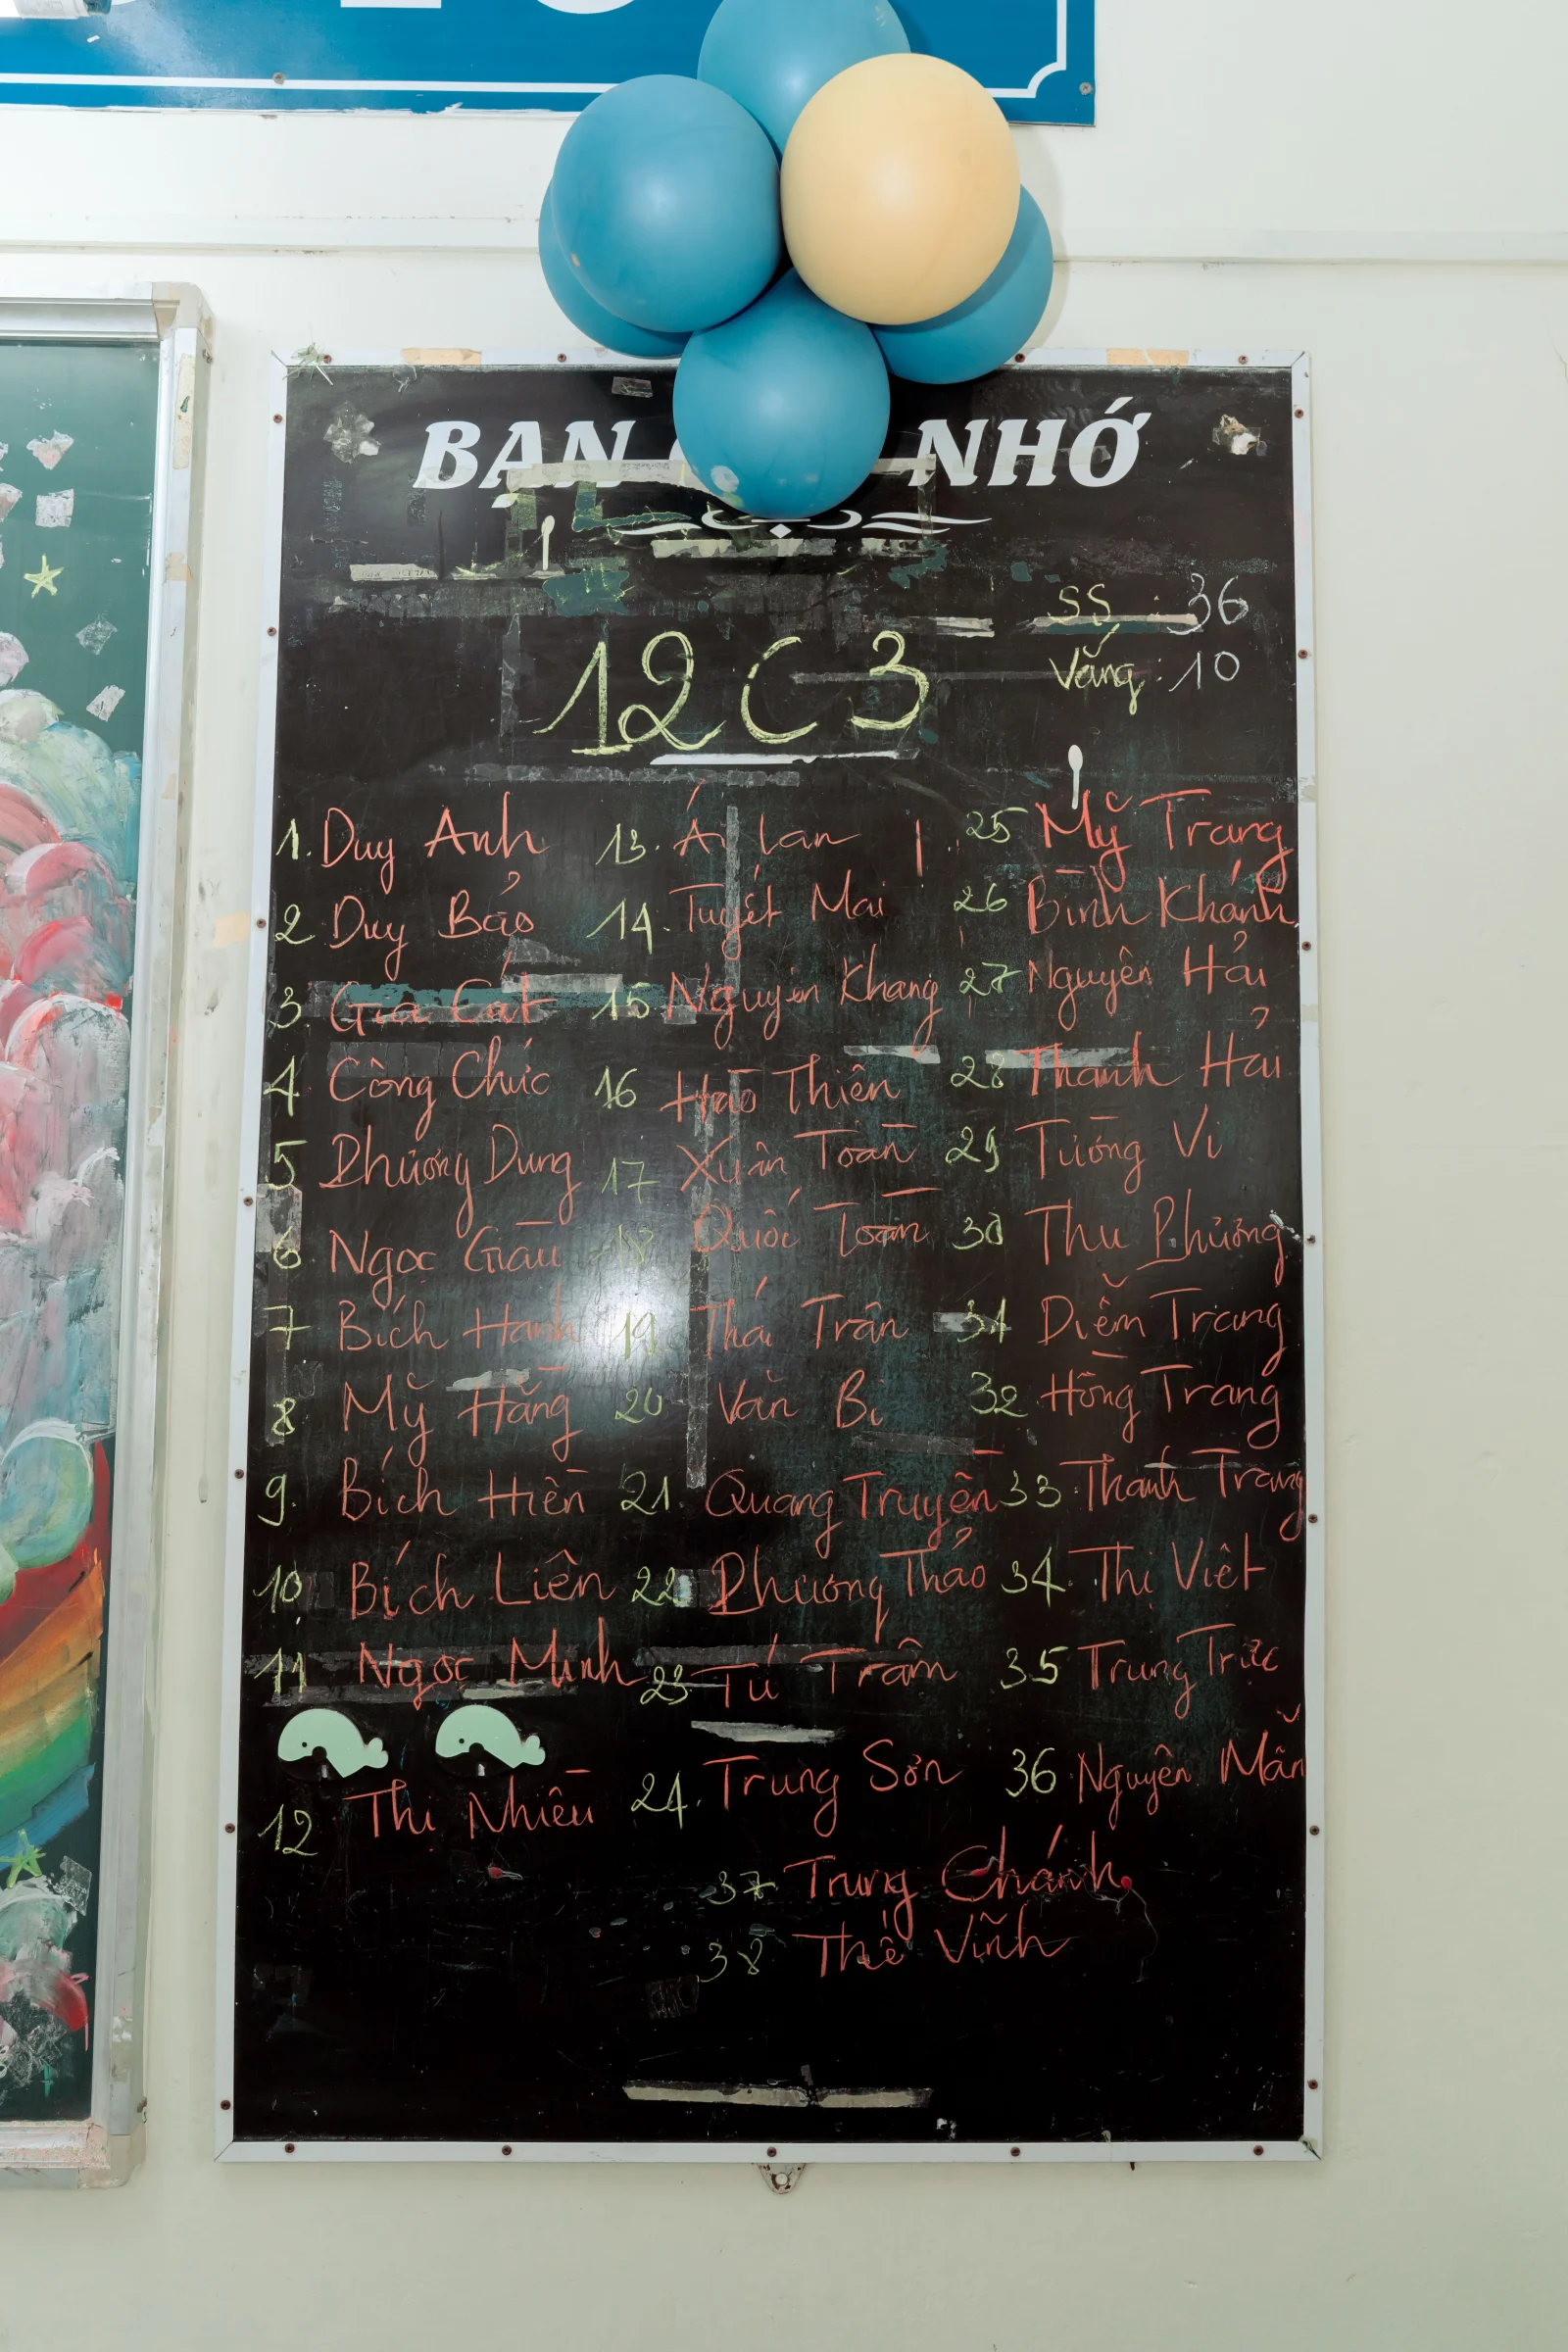 BẠN NHỚ
SS : 36
Vắng : 10
12C3
1. Duy Anh
2. Duy Bảo
3. Gia Cát
4 Công Chức
5 Phương Dung
6 Ngọc Giàu
7 Bích Hạnh
8 Mỹ Hằng
9. Bích Hiền
10 Bích Liên
11 Ngọc Minh
12 Thị Nhiều
13. Ái Lan
14. Tuyết Mai
15 Nguyên Khang
16 Hào Thiên
17 Xuân Toàn
18 Quốc Toàn
19 Thái Trân
20 Văn Bi
21. Quang Truyền
22 Phương Thảo
23 Tú Trâm
24. Trung Sơn
25 Mỹ Trang
26 Bình Khánh
27 Nguyên Hải
28 Thanh Hải
29 Tường Vi
30 Thu Phương
31 Diễm Trang
32 Hồng Trang
33 Thanh Trang
34. Thị Việt
35 Trung Trực
36 Nguyên Mẫn
37 Trung Chánh
38 Thế Vĩnh